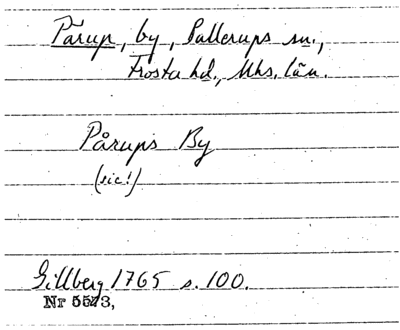 Pärup, by, Pallerups sn.,
Frosta hd., Mhs. län.
Pårups By
(sic!)
Gillberg 1765 s. 100.
Nr 5573,